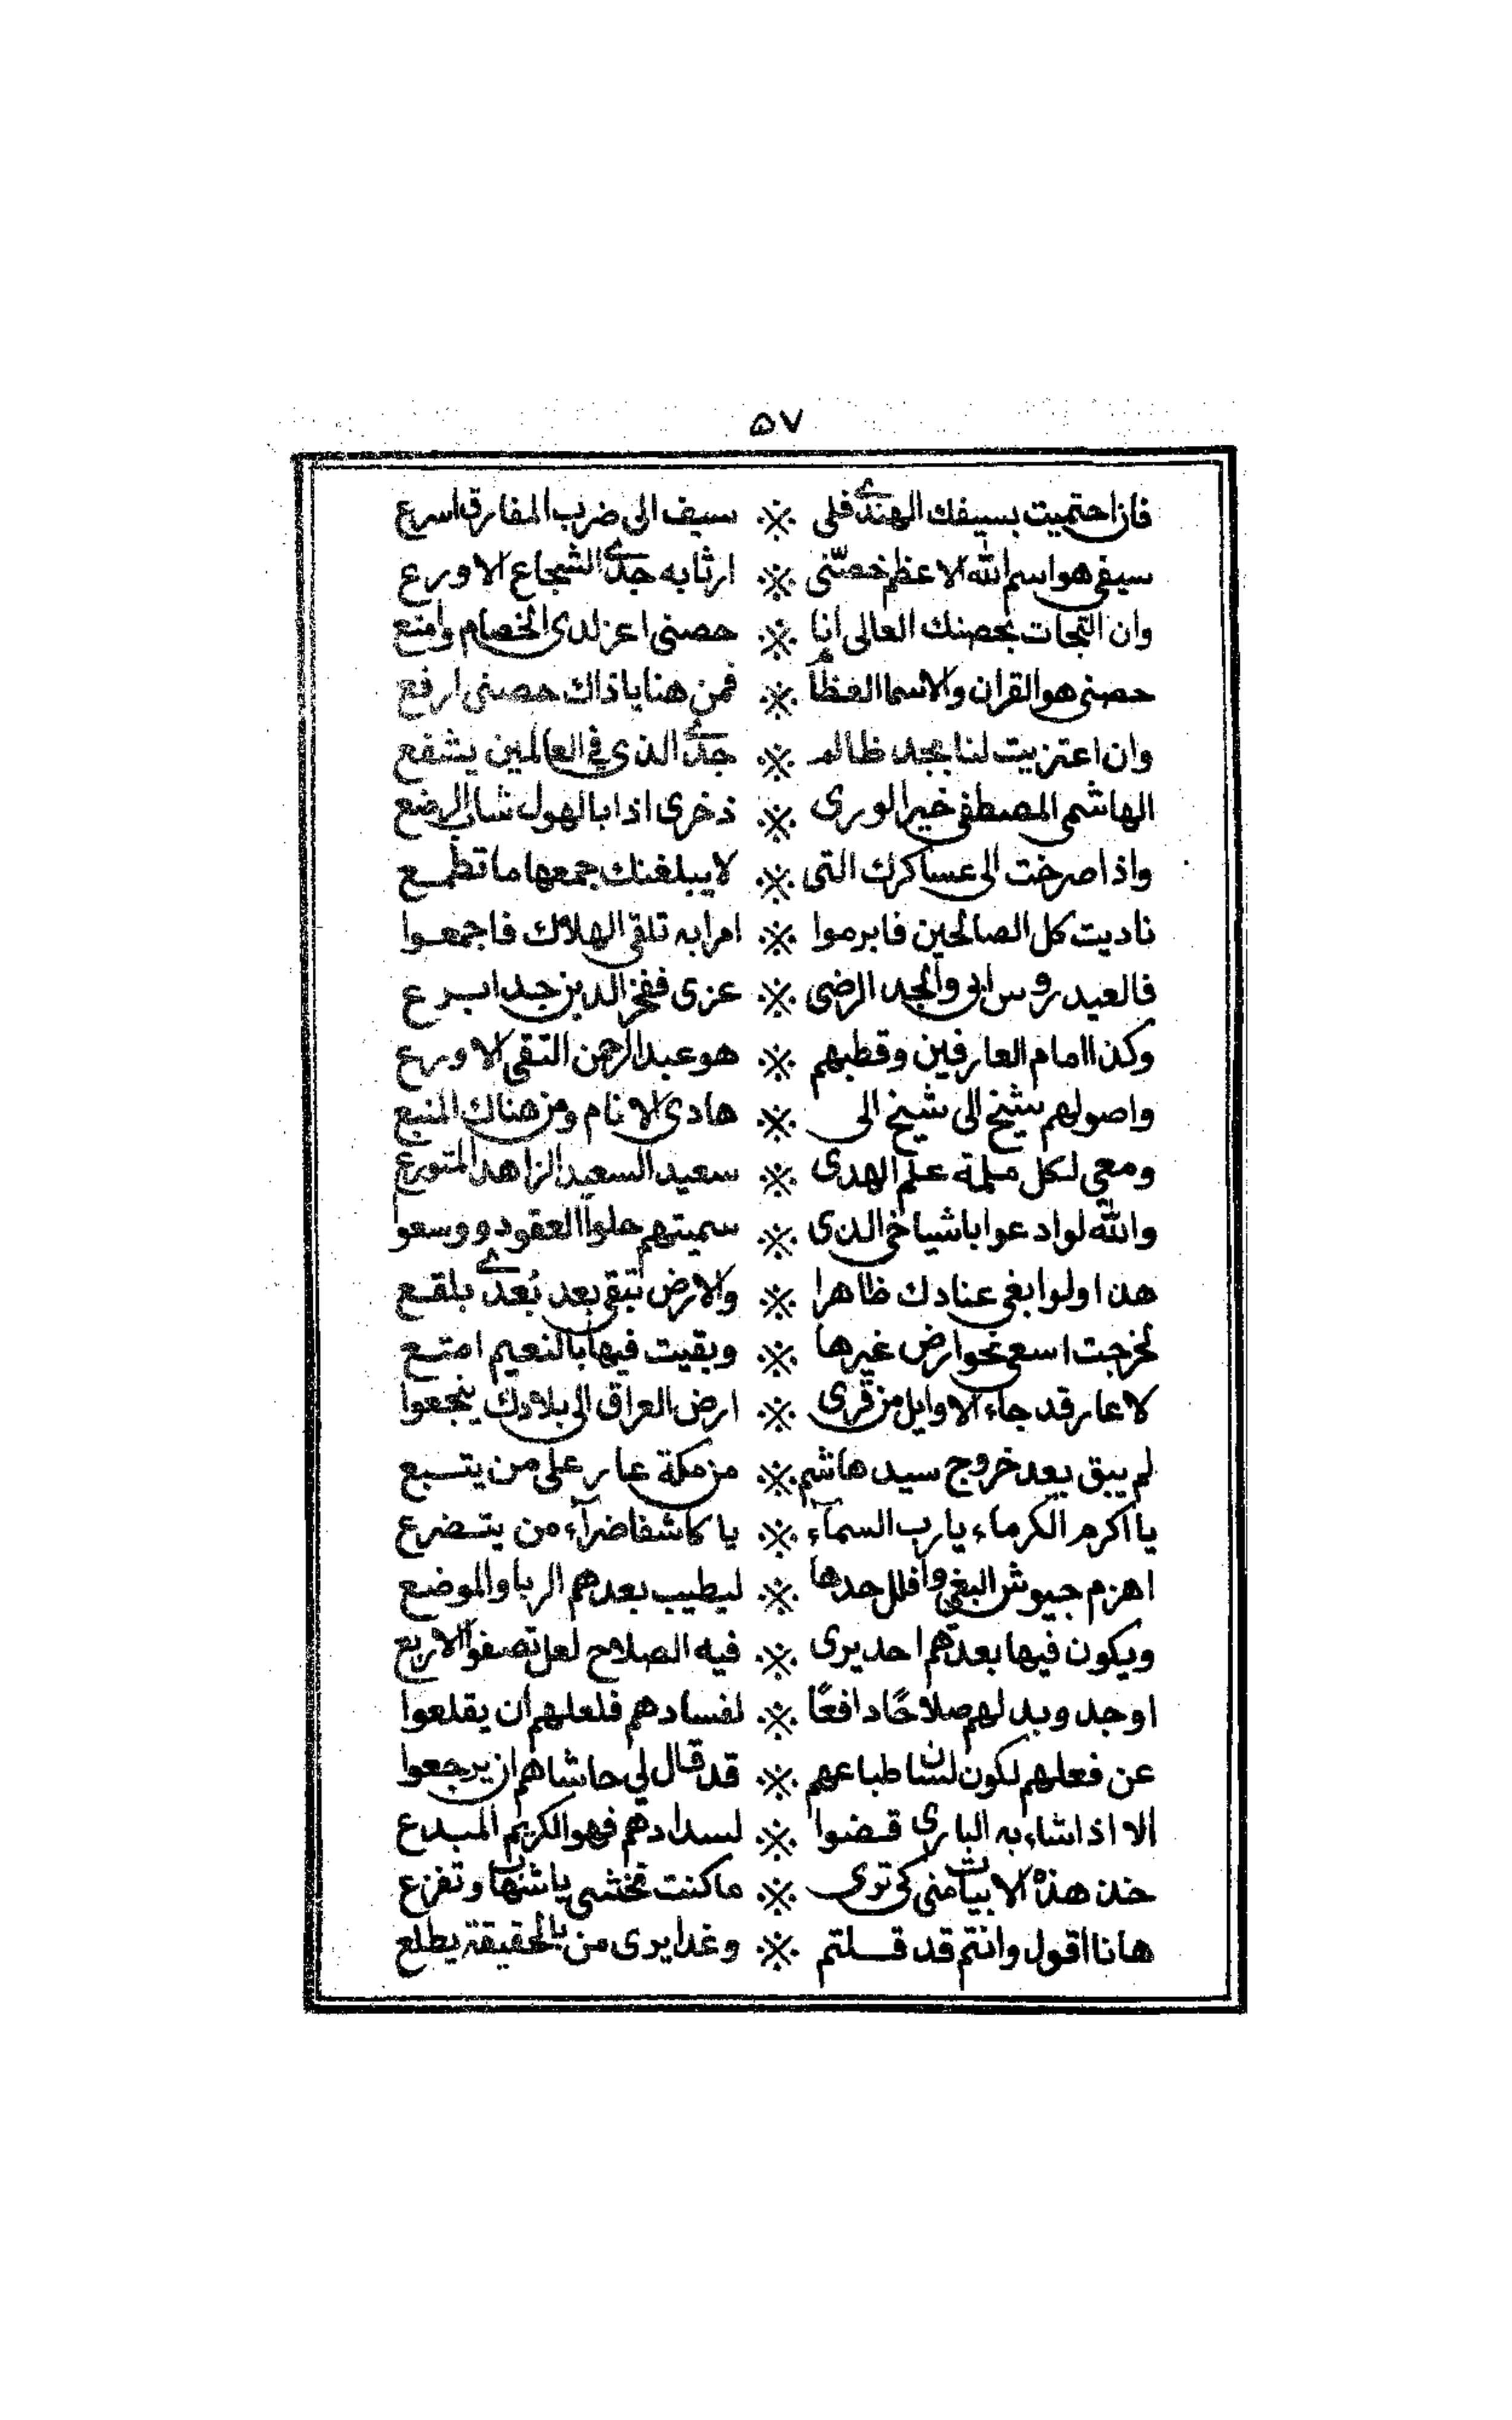 ٥٧
فان احتميت بسيفك الهندي فلي ※ سيف الى ضرب المفارق اسرع
سيفي هو اسم الله الاعظم خصّني ※ ارثا به جدي الشجاع الاورع
وان التجات بحصنك العالى انا ※ حصنى اعز لدى الخصام وامنع
حصنى هو القران والاسما العظام ※ فمن هنا يا ذاك حصنى ارفع
وان اعتزيت لنا بجد ظالم ※ جدي الذي في العالمين يشفع
الهاشمى المصطفى خير الورى ※ ذخرى اذا بالهول شاب الرضع
واذا صرخت الى عساكرك التى ※ لا يبلغنك جمعها ما تطمع
ناديت كل الصالحين فابرموا ※ امرا به تلقى الهلاك فاجمعوا
فالعيدروس ابى والجد الرضى ※ عزى ففخر الدين جد ابرع
وكذا امام العارفين وقطبهم ※ هو عبد الرحمن التقى الاورع
واصولهم شيخ الى شيخ الى ※ هادى الانام ومن هناك المنبع
ومعى لكل ملمة علم الهدى ※ سعيد السعيد الزاهد المتورع
والله لو ادعوا باشياخى الذى ※ سميتهم حلوا العقود ووسعوا
هذا ولو ابغى عنادك ظاهرا ※ والارض تبقى بعد بُعدي بلقع
لخرجت اسعى نحو ارض غيرها ※ وبقيت فيها بالنعيم امتع
لا عار قد جاء الاوايل من قرى ※ ارض العراق الى بلادك ينجعوا
لم يبق بعد خروج سيد هاشم ※ من مكة عار على من يتبع
يا اكرم الكرماء يا رب السمآء ※ يا كاشفا ضرآء من يتضرع
اهزم جيوش البغي وافلل حدها ※ ليطيب بعدهم الربا والموضع
ويكون فيها بعدهم احد يرى ※ فيه الصلاح لعل تصفو الاربع
او جد وبد لهم صلاحًا دافعًا ※ لفسادهم فلعلهم ان يقلعوا
عن فعلهم لكون لسان طباعهم ※ قد قال لي حاشاهم ان يرجعوا
الا اذا شاء به البارى قضوا ※ لسدادهم فهو الكريم المبدع
خذ هذه الابيات منى كى ترى ※ ما كنت تخشى وتفزع
ها نا اقول وانتم قد قلتم ※ وغدا يرى من بالحقيقة يطلع